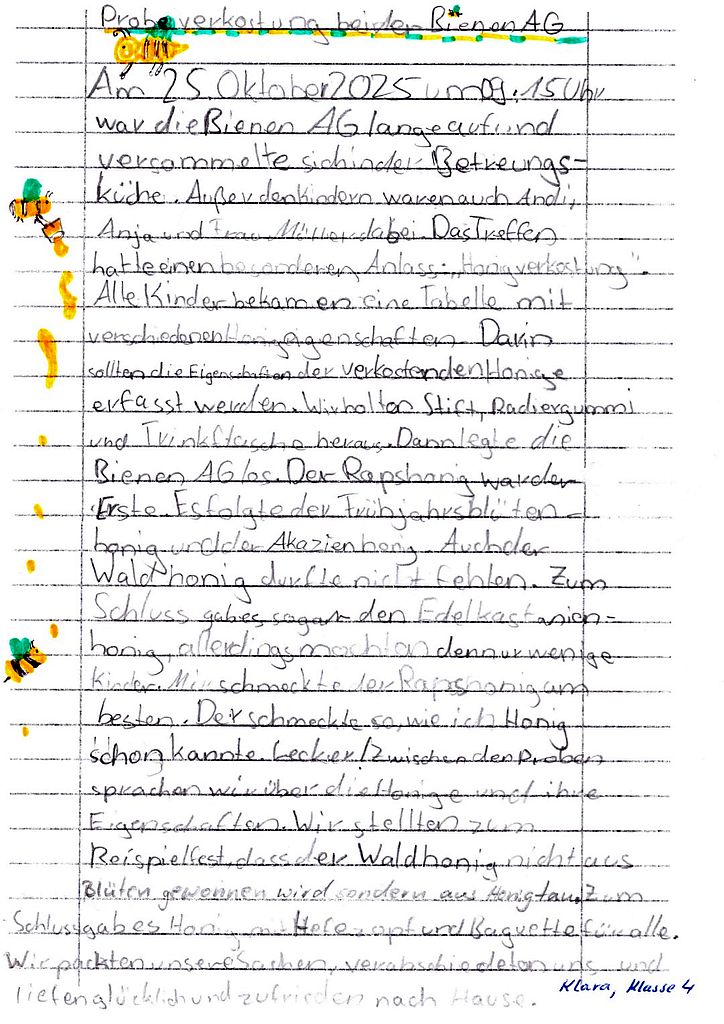 Probeverkostung bei der Bienen AG
Am 25. Oktober 2025 um 09:15 Uhr
war die Bienen AG lange auf und
versammelte sich in der Betreungs-
küche. Außer den Kindern waren auch Andi,
Anja und Frau Müller dabei. Das Treffen
hatte einen besonderen Anlass: „Honigverkostung".
Alle Kinder bekamen eine Tabelle mit
verschiedenen Honigeigenschaften. Darin
sollten die Eigenschaften der verkostenden Honige
erfasst werden. Wir holten Stift, Radiergummi
und Trinkflasche heraus. Dann legte die
Bienen AG los. Der Rapshonig war der
Erste. Es folgte der Frühjahrsblüten-
honig und der Akazienhonig. Auch der
Waldhonig durfte nicht fehlen. Zum
Schluss gab es sogar den Edelkastanien-
honig, allerdings mochten den nur wenige
Kinder. Mir schmeckte der Rapshonig am
besten. Der schmeckte so, wie ich Honig
schon kannte. Lecker! Zwischen den Proben
sprachen wir über die Honige und ihre
Eigenschaften. Wir stellten zum
Beispiel fest, dass der Waldhonig nicht aus
Blüten gewonnen wird sondern aus Honigtau. Zum
Schluss gab es Honig mit Hefezopf und Baguette für alle.
Wir packten unsere Sachen, verabschiedeten uns und
liefen glücklich und zufrieden nach Hause.
Klara, Klasse 4